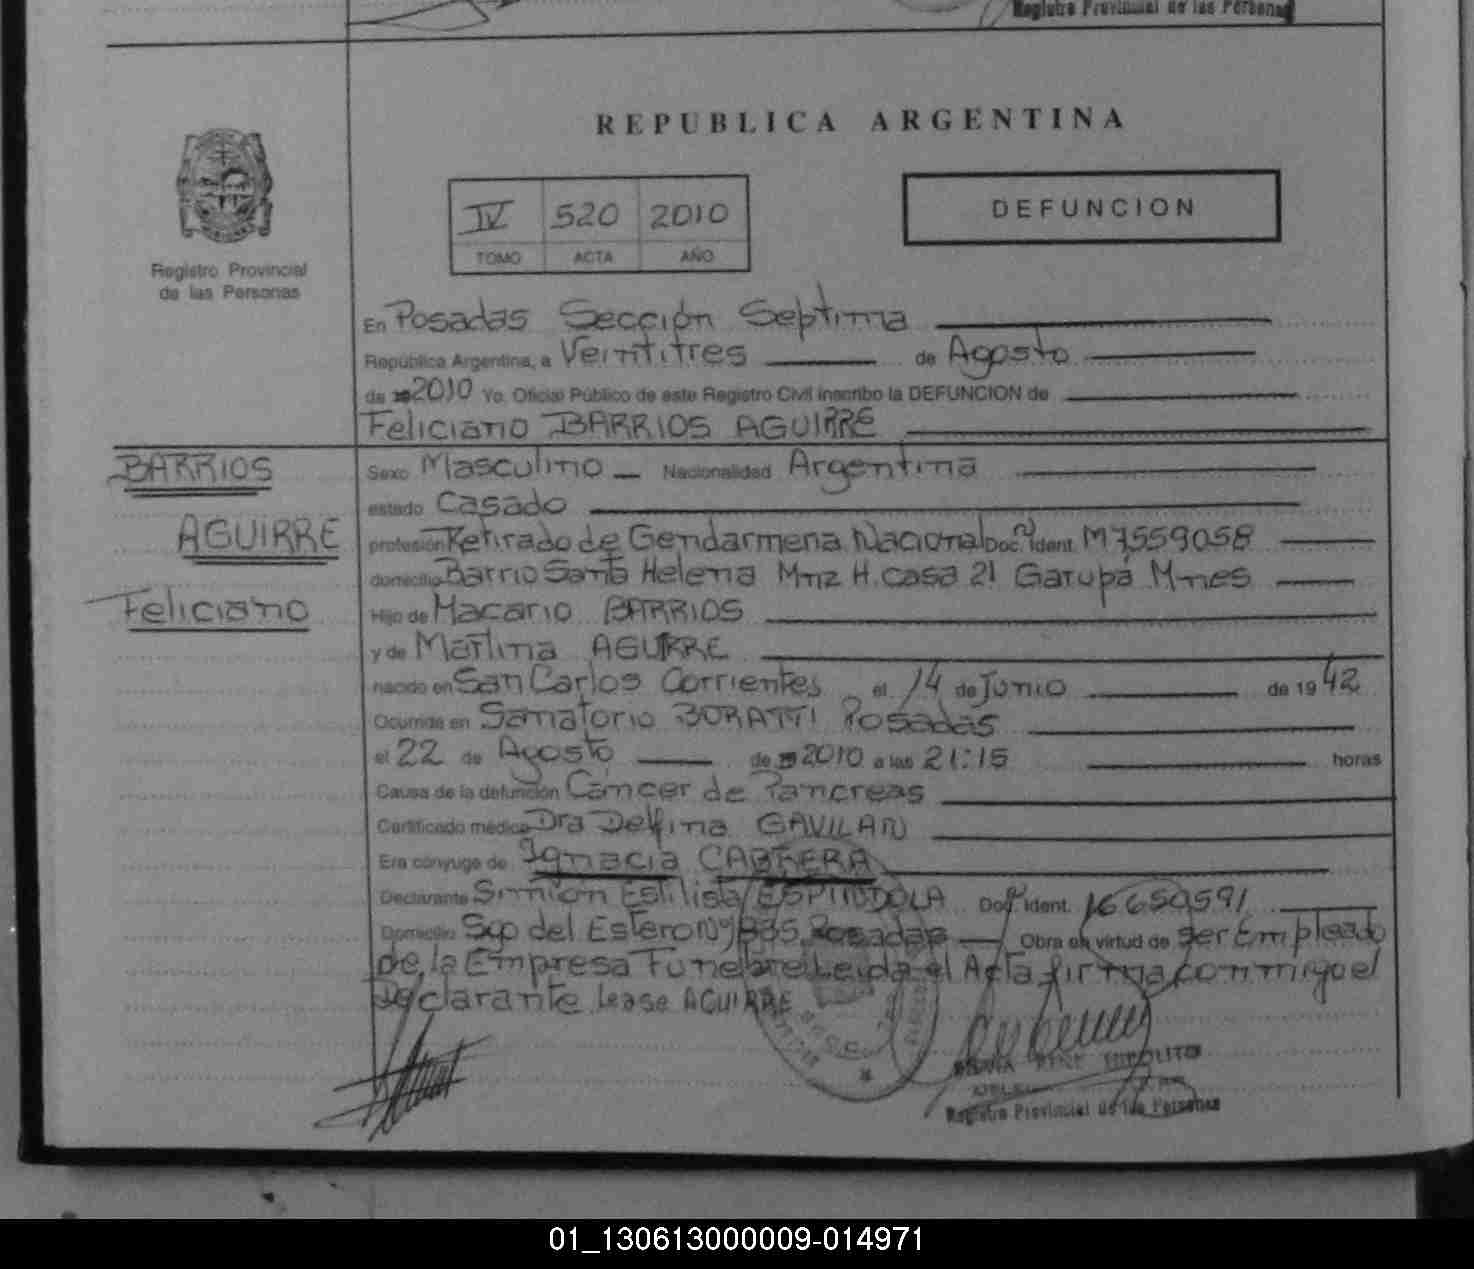 Registro Provincial de las Personas
REPUBLICA ARGENTINA
IV 520 2010
TOMO ACTA AÑO
DEFUNCION
Registro Provincial
de las Personas
En Posadas Sección Septima
República Argentina, a Veintitres de Agosto
de 2010 Yo, Oficial Público de este Registro Civil inscribo la DEFUNCION de
Feliciano BARRIOS AGUIRRE
BARRIOS
AGUIRRE
Feliciano
Sexo Masculino Nacionalidad Argentina
estado Casado
profesión Retirado de Gendarmeria Nacional Doc. Ident. M7559058
domicilio Barrio Santa Helena Mnz H. casa 21 Garupá Mnes
Hijo de Macario BARRIOS
y de Martina AGUIRRE
nacido en San Carlos Corrientes el 14 de Junio de 1942
Ocurrida en Sanatorio BORATTI Posadas
el 22 de Agosto de 2010 a las 21:15 horas
Causa de la defunción Cancer de Pancreas
Certificado médico Dra Delfina GAVILAN
Era cónyuge de Ignacia CABRERA
Declarante Simion Estilista ESPINDOLA Doc. Ident. 16650591
Domicilio Sgo del Estero Nº 835 Posadas Obra en virtud de ser Empleado
de la Empresa Funebre Leida el Acta firma conmigo el
Declarante Lease AGUIRRE
HIPOLITO
Registro Provincial de las Personas
01_130613000009-014971